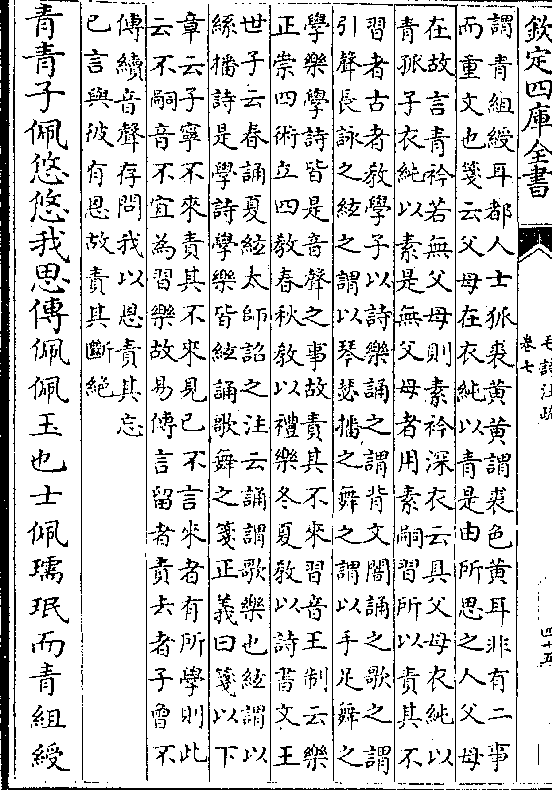 欽定四庫全書
毛詩注疏
卷七
四十五
謂青組綬耳都人士狐裘黄黄謂裘色黄耳非有二事
而重文也箋云父母在衣純以青是由所思之人父母
在故言青衿若無父母則素衿深衣云具父母衣純以
青孤子衣純以素是無父母者用素嗣習所以責其不
習者古者教學子以詩樂誦之謂背文闇誦之歌之謂
引聲長詠之絃之謂以琴瑟播之舞之謂以手足舞之
學樂學詩皆是音聲之事故責其不來習音王制云樂
正崇四術立四教春秋教以禮樂冬夏教以詩書文王
世子云春誦夏絃太師詔之注云誦謂歌樂也絃謂以
絲播詩是學詩學樂皆絃誦歌舞之箋正義曰箋以下
章云子寧不來責其不來見己不言來者有所學則此
云不嗣音不宜為習樂故易傳言留者責去者子曾不
傳續音聲存問我以恩責其忘
己言與彼有恩故責其斷絶
青青子佩悠悠我思傳佩佩玉也士佩瓀珉而青組綬